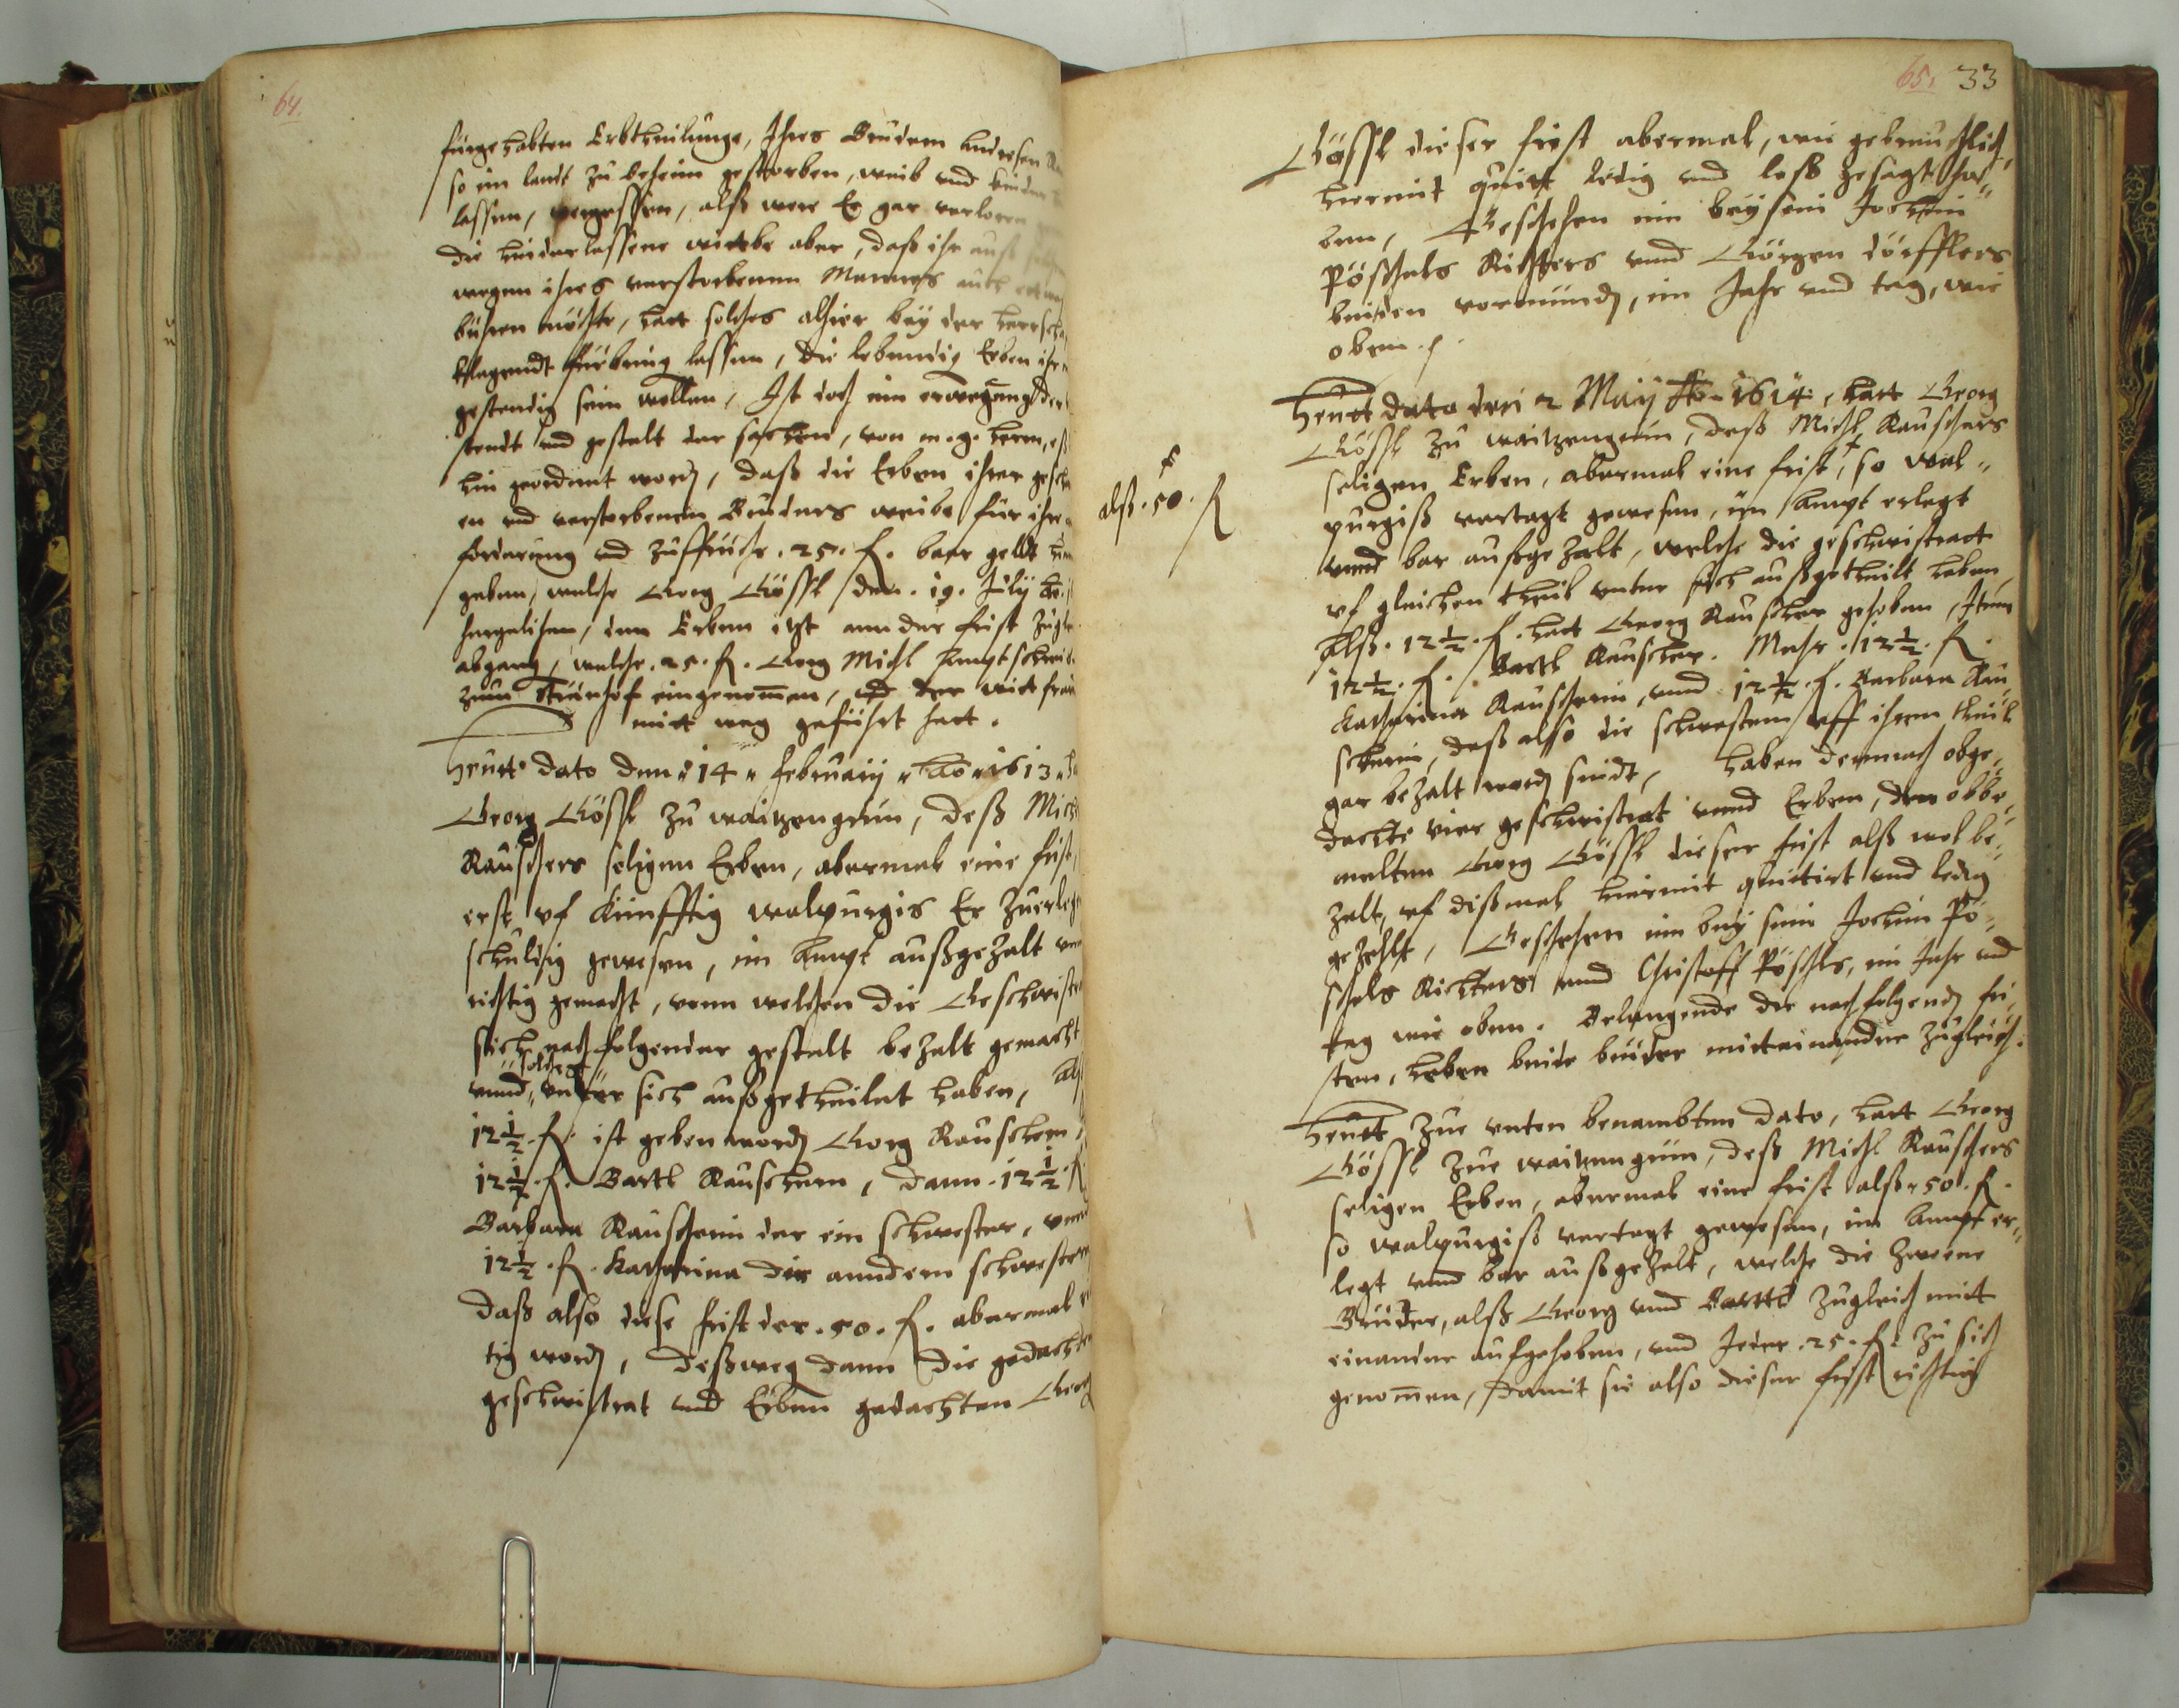 64.
fürgehabten Erbtheilunge, Ihres Brudern Andresen
so im landt zu beheim gestorben, weib und kinder
lassen, vergessen, alß were Er gar verloren
die hinderlassene wittbe aber, daß ihr auß
wegen ihres verstorbenen Mannes auch
büren möchte, hatt solches alhier bey der herrsch
klagendt fürbring lassen, die lebendig Erben ihr
gestendig sein wollen, Ist doch inn erwegung der
standt und gestalt der sachen, von m. g. herrn,
hin geordnet word, daß die Erben ihrer gesch
en und verstorbenen Bruders weibe für ihre
forderung und Zuspruch. 25. f. baar gellt
geben, welche Georg Gössl den. 19. July
hergelihen, den Erben itzt ann der frist Zugl
abgang, welche. 25. f. Georg Michl Amptschreib
Zum Türnhof eingenommen, und der wittfraw
mitt weg geführt hatt.
Heutt dato den 14 February Ao 1613 ha
Georg Gössl Zu waitzengrün, deß Michl
Rauschers seligen Erben, abermal eine frist,
erst uf künfftig walpurgis Er Zuerlege
schuldig gewesen, im Ampt außgeZalt unn
richtig gemacht, vonn welchen die Geschwistr
sich nach folgender gestalt beZalt gemacht
solche
unnd, unter sich außgetheilet haben, Alß
12 1/2. f. ist geben word Georg Rauschern,
12 1/2. f. Bartl Rauschern, dann. 12 1/2. f
Barbara Rauscherin der ein schwester, unnd
12 1/2. f. Katharina der anndern schwestern
daß also diese frist der. 50. f. abermal
tig word, deßweg dann die gedachten
geschwistrat und Erben gedachten Georg
65. 33
Gössl dieser frist abermal, wie gebreuchlich,
hiermit quitt ledig und loß gesagt ha„
ben, Geschehen im beysein Jochim
Pöschels Richters und Görgen Dörfflers
beiden vormund, im Jahr und tag, wie
oben.
Heutt dato den 2 Maij Ao 1614, hatt Georg
Gössl Zu waitzengrün, deß Michl Rauschers
seligen Erben, abermal eine frist, + so wal„
+
alß. 50. f
purgiß vertagt gewesen, im Ampt erlegt
unnd bar außgeZalt, welche die geschwistratt
uf gleichen theil unter sich außgetheilt haben,
Alß. 12 1/2. f. hatt Georg Rauscher gehoben, Item
12 1/2. f. Bartl Rauscher. Mehr. 12 1/2. f.
Katharina Rauscherin, unnd 12 1/2. f. Barbara Rau„
scherin, daß also die schwestern uff ihren theil
gar beZalt word sindt, haben demnach obge„
dachte vier geschwistrat unnd Erben, den obbe„
melten Georg Gössl dieser frist alß wol be„
Zalt, uf dißmal hiermit quittirt und ledig
geZehlt, Geschehen im bey sein Jochim Pö„
schels Richters unnd Christoff Pöschels, im Jahr und
tag wie oben. Belangende die nachfolgend fri„
sten, heben beide brüder mitteinander Zugleich.
Heutt Zue unten benambten dato, hatt Georg
Gössl Zue waitzengrün, deß Michl Rauschers
seligen Erben, abermal eine frist alß 50. f.
so walpurgiß vertagt gewesen, im Ampt er„
legt und bar außgeZalt, welche die Zweene
Brüder, alß Georg unnd Barttl Zugleich mitt
einander aufgehoben, und Jeder. 25. f. Zu sich
genommen, damit sie also dieser frist richtig